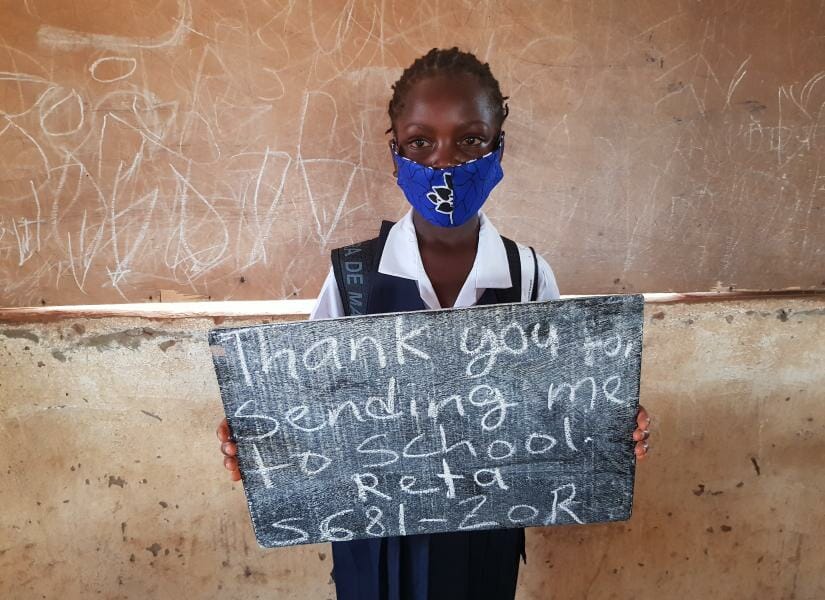 Thank you for
Sending me
to school.
Reta
S681-ZoR
A DE MA